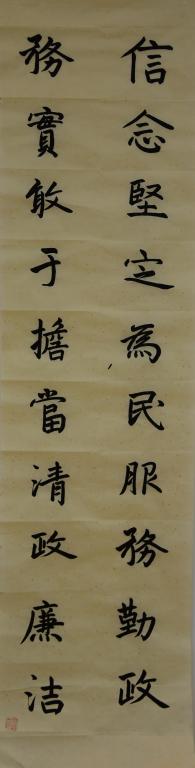 信念堅定為民服務勤政
務實敢于擔當清政廉洁